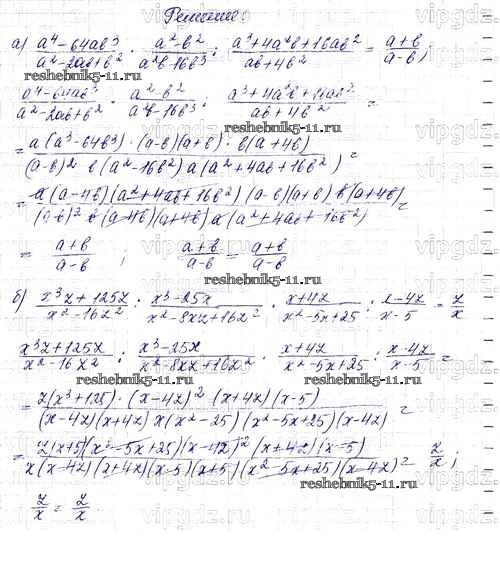 Решение:
а) (a⁴-64ab³)/(a²-2ab+b²) · (a²-b²)/(a²b-16b³) : (a³+4a²b+16ab²)/(ab+4b²) = (a+b)/(a-b);
reshebnik5-11.ru
(a⁴-64ab³)/(a²-2ab+b²) · (a²-b²)/(a²b-16b³) : (a³+4a²b+16ab²)/(ab+4b²) =
= (a(a³-64b³)·(a-b)(a+b)·b(a+4b))/((a-b)²·b(a²-16b²)a(a²+4ab+16b²)) =
= (a(a-4b)(a²+4ab+16b²)(a-b)(a+b)b(a+4b))/((a-b)²b(a-4b)(a+4b)a(a²+4ab+16b²)) =
= (a+b)/(a-b); (a+b)/(a-b) = (a+b)/(a-b)
reshebnik5-11.ru
б) (x³z+125z)/(x²-16z²) : (x³-25x)/(x²-8xz+16z²) · (x+4z)/(x²-5x+25) : (x-4z)/(x-5) = z/x
reshebnik5-11.ru
(x³z+125z)/(x²-16z²) : (x³-25x)/(x²-8xz+16z²) · (x+4z)/(x²-5x+25) : (x-4z)/(x-5) =
reshebnik5-11.ru
= (z(x³+125)·(x-4z)²(x+4z)(x-5))/((x-4z)(x+4z)x(x²-25)(x²-5x+25)(x-4z)) =
= (z(x+5)(x²-5x+25)(x-4z)²(x+4z)(x-5))/(x(x-4z)(x+4z)(x-5)(x+5)(x²-5x+25)(x-4z)) = z/x;
reshebnik5-11.ru
z/x = z/x
vipgdz